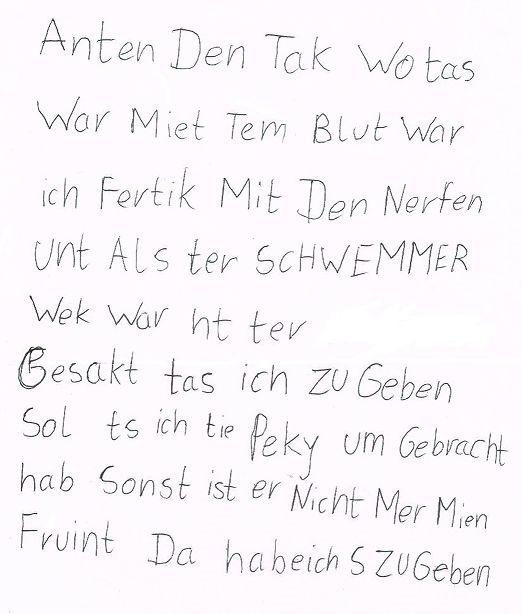 Anten Den Tak Wo tas
War Miet Tem Blut War
ich Fertik Mit Den Nerfen
Unt Als ter SCHWEMMER
Wek War ht ter
Gesakt tas ich ZU Geben
Sol ts ich tie Peky um Gebracht
hab Sonst ist er Nicht Mer Mien
Fruint Da habeich S ZUGeben